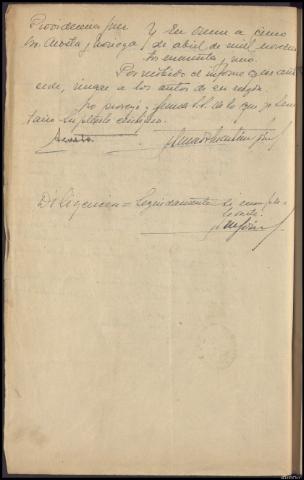 Providencia Juez Y En Osuna a cinco
Sr. Acosta y Noroga / de abril de mil novecien
tos cuarenta y uno.
Por recibido el informe que ante
cede, únase a los autos de su razón.
Lo proveyó y firma S.S. de lo que yo Secre
tario suplente certifico.
Acosta
Diligencia = Seguidamente se cumple
lo